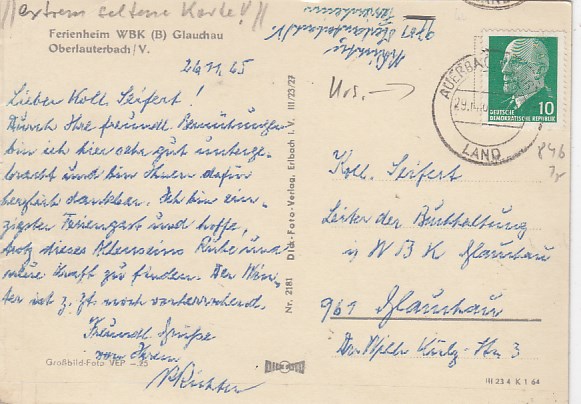 extrem seltene Karte!
Ferienheim WBK (B) Glauchau
Oberlauterbach/V.
26.11.65
Lieber Koll. Seifert!
Durch Ihre freundl. Bemühungen
bin ich hier sehr gut unterge-
bracht und bin Ihnen dafür
herzlich dankbar. Ich bin ein-
zigster Feriengast und hoffe,
trotz dieses Alleinseins Ruhe und
neue Kraft zu finden. Der Win-
ter ist z. Zt. noch vorherrschend.
Freundl. Grüße
von Ihrem
Richter
Großbild-Foto VEP –.25
Nr. 2181 Dick-Foto-Verlag, Erlbach i. V. III/23/27
9701
AUERBACH
LAND
DEUTSCHE
DEMOKRATISCHE REPUBLIK
10
846
Koll. Seifert
Leiter der Buchhaltung
WBK Glauchau
961 Glauchau
Dr. Wilh. Külz-Str. 3
III 23 4 K 1 64